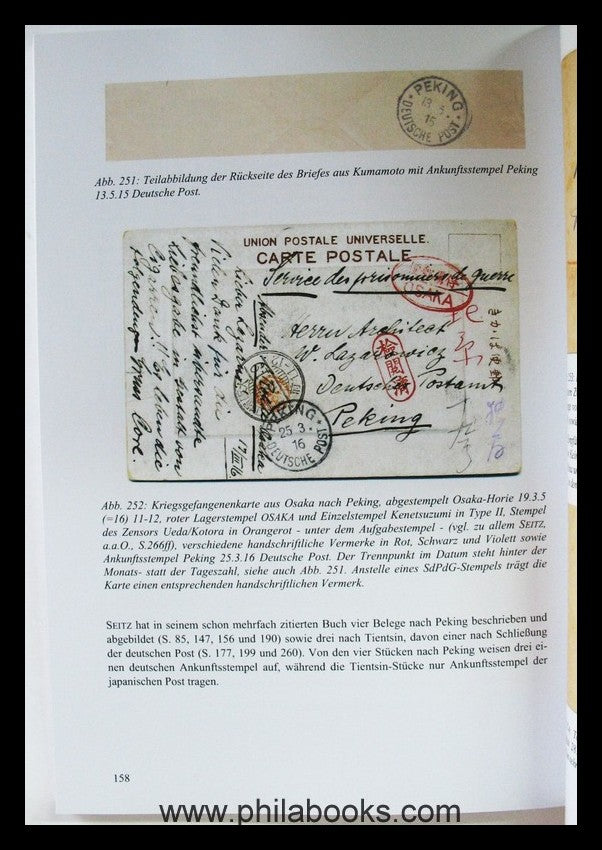 PEKING
DEUTSCHE POST
Abb. 251: Teilabbildung der Rückseite des Briefes aus Kumamoto mit Ankunftsstempel Peking
13.5.15 Deutsche Post.
UNION POSTALE UNIVERSELLE.
CARTE POSTALE
Service des prisonniers de guerre
OSAKA
Herrn Architect
W. Lazarowicz
Deutsches Postamt
Peking
檢閲濟
Vielen Dank für die
PEKING
25 3
16
DEUTSCHE POST
Abb. 252: Kriegsgefangenenkarte aus Osaka nach Peking, abgestempelt Osaka-Horie 19.3.5
(=16) 11-12, roter Lagerstempel OSAKA und Einzelstempel Kenetsuzumi in Type II, Stempel
des Zensors Ueda/Kotora in Orangerot - unter dem Aufgabestempel - (vgl. zu allem SEITZ,
a.a.O., S.266ff), verschiedene handschriftliche Vermerke in Rot, Schwarz und Violett sowie
Ankunftsstempel Peking 25.3.16 Deutsche Post. Der Trennpunkt im Datum steht hinter der
Monats- statt der Tageszahl, siehe auch Abb. 251. Anstelle eines SdPdG-Stempels trägt die
Karte einen entsprechenden handschriftlichen Vermerk.
SEITZ hat in seinem schon mehrfach zitierten Buch vier Belege nach Peking beschrieben und
abgebildet (S. 85, 147, 156 und 190) sowie drei nach Tientsin, davon einer nach Schließung
der deutschen Post (S. 177, 199 und 260). Von den vier Stücken nach Peking weisen drei ei-
nen deutschen Ankunftsstempel auf, während die Tientsin-Stücke nur Ankunftsstempel der
japanischen Post tragen.
158
www.philabooks.com